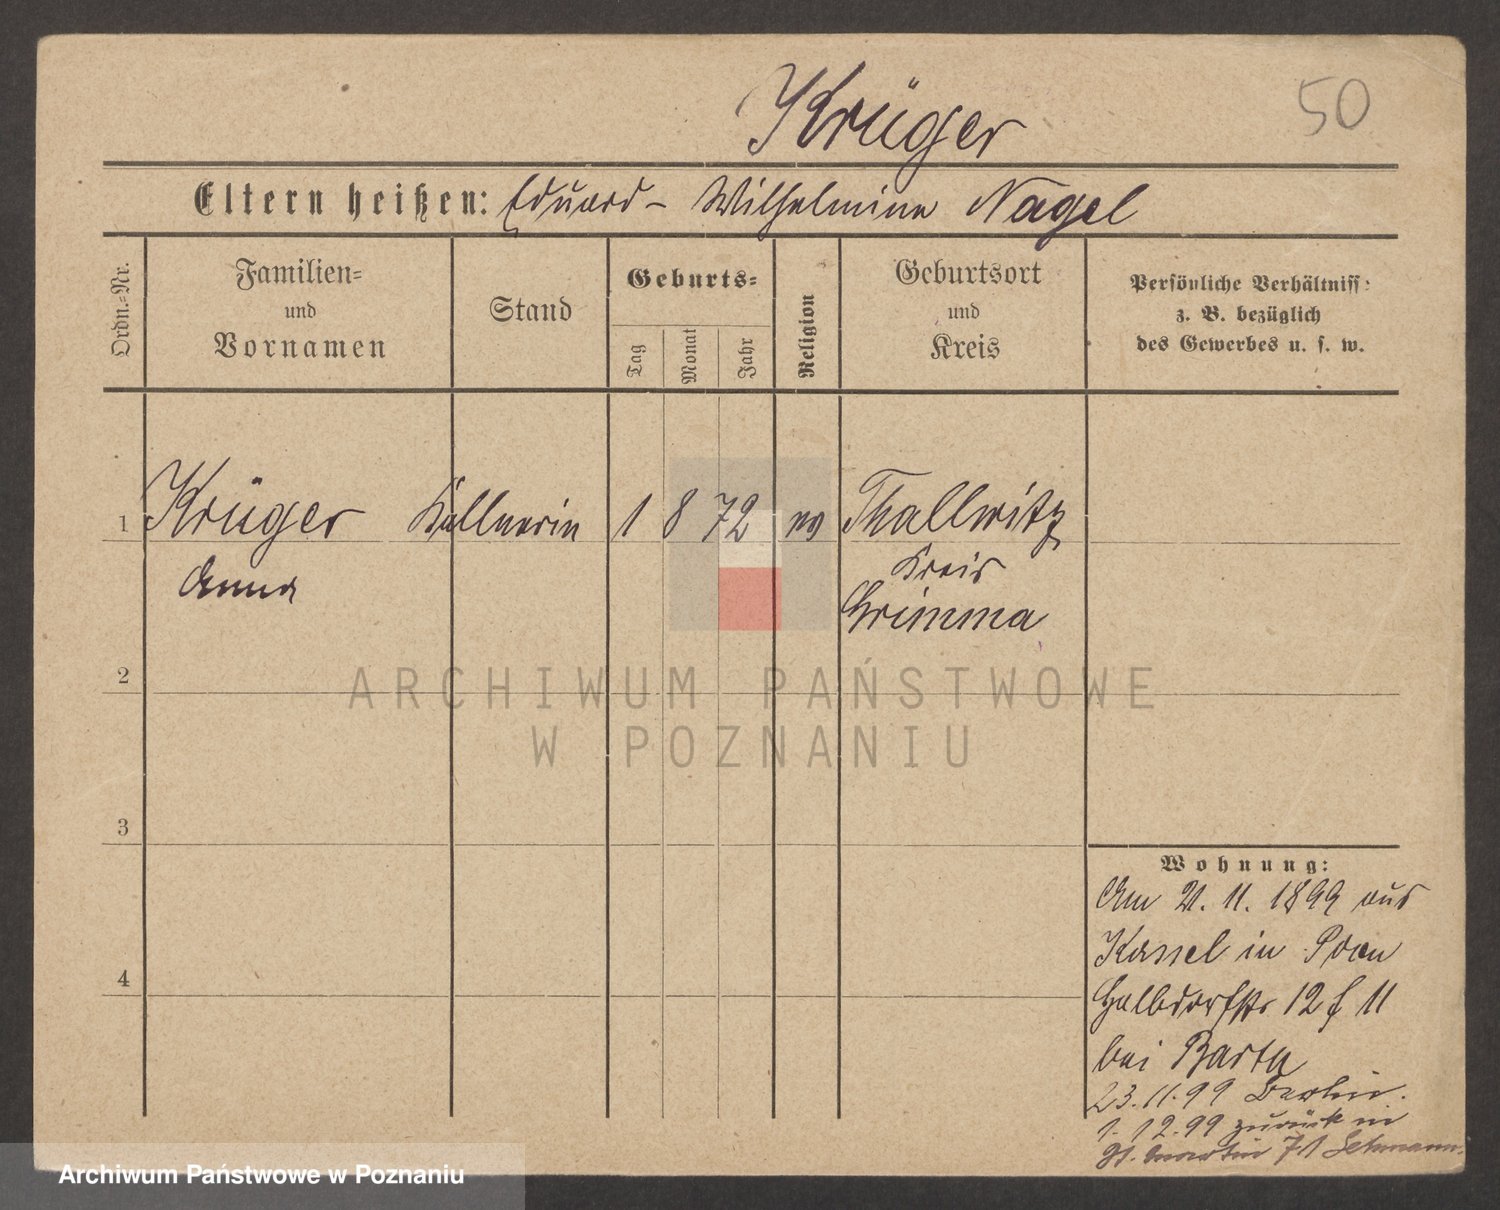 Krüger
50
Eltern heißen: Eduard - Wilhelmine Nagel
Ordn.=Nr.
Familien=
und
Vornamen
Stand
Geburts=
Tag
Monat
Jahr
Religion
Geburtsort
und
Kreis
Persönliche Verhältniss:
z. B. bezüglich
des Gewerbes u. s. w.
1 Krüger Kellnerin 1 8 72 ev Thallwitz
Anna
Kreis
Grimma
2
3
4
Wohnung:
Am 21. 11. 1899 aus
Kassel in Posen
Halbdorfstr 12 f 11
bei Barta
23.11.99 Berlin.
1. 12.99 zurück in
St. Martin 71 Lehmann.
ARCHIWUM PAŃSTWOWE
W POZNANIU
Archiwum Państwowe w Poznaniu